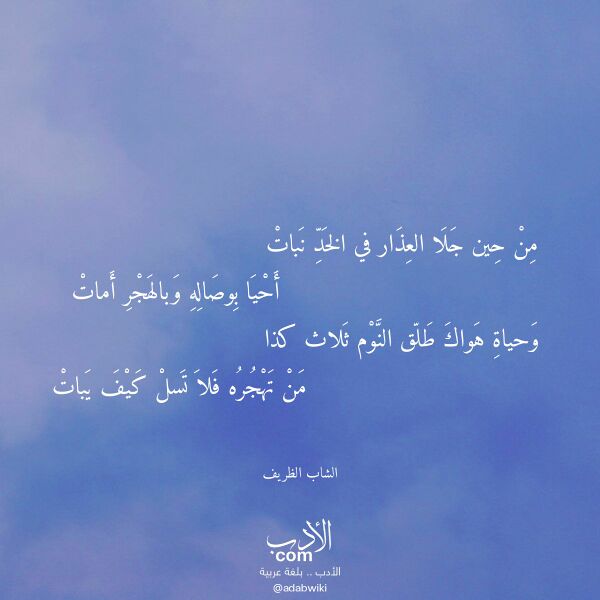 مِنْ حِين جَلَا العِذَار في الخَدِّ نَباتْ
أَحْيَا بِوصَالِهِ وَبالهَجْرِ أَماتْ
وَحياةِ هَواكَ طَلّق النَّوْم ثَلاث كذا
مَنْ تَهْجُره فَلاَ تَسلْ كَيْفَ يَباتْ
الشاب الظريف
الأدب
com
الأدب .. بلغة عربية
@adabwiki